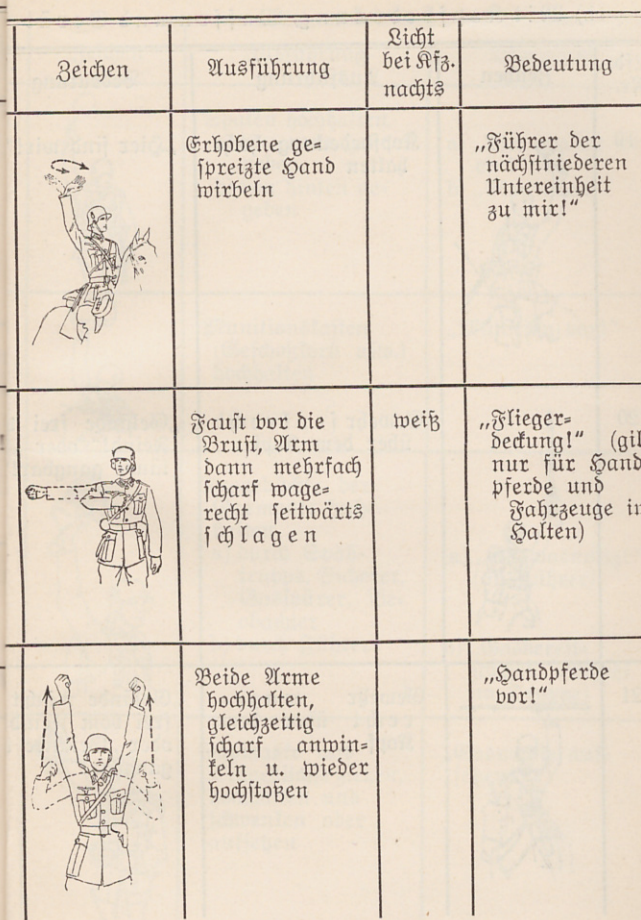 Zeichen
Ausführung
Licht
bei Kfz.
nachts
Bedeutung
Erhobene ge-
spreizte Hand
wirbeln
„Führer der
nächstniederen
Untereinheit
zu mir!“
Faust vor die
Brust, Arm
dann mehrfach
scharf wage-
recht seitwärts
schlagen
weiß
„Flieger-
deckung!“ (gil
nur für Hand
pferde und
Fahrzeuge in
Halten)
Beide Arme
hochhalten,
gleichzeitig
scharf anwin-
keln u. wieder
hochstoßen
„Handpferde
vor!“